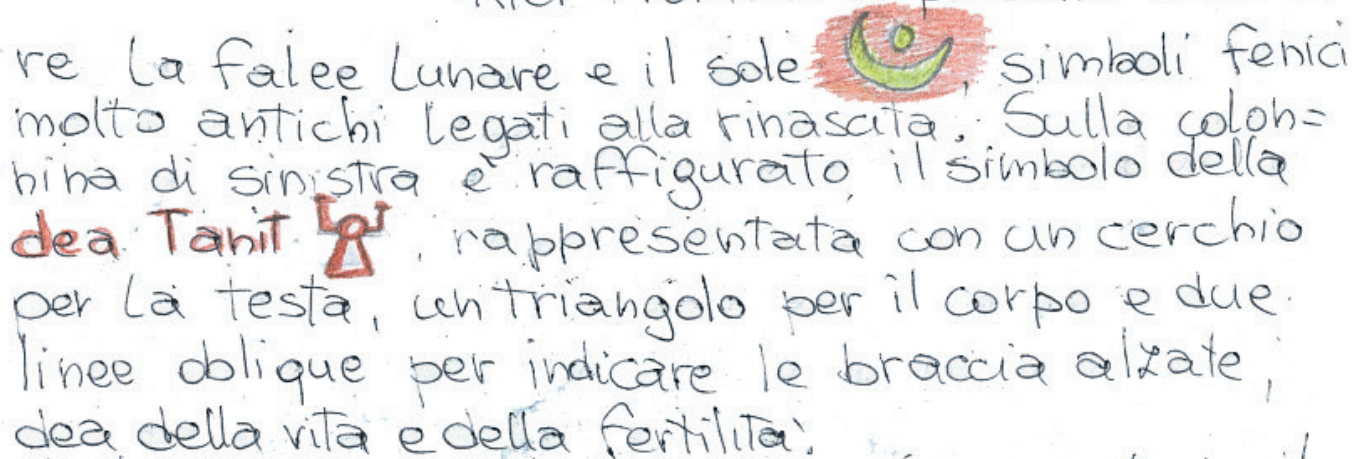 re la falce lunare e il sole , simboli fenici
molto antichi legati alla rinascita. Sulla colon=
nina di sinistra è raffigurato il simbolo della
dea Tanit , rappresentata con un cerchio
per la testa, un triangolo per il corpo e due
linee oblique per indicare le braccia alzate,
dea della vita e della fertilità.